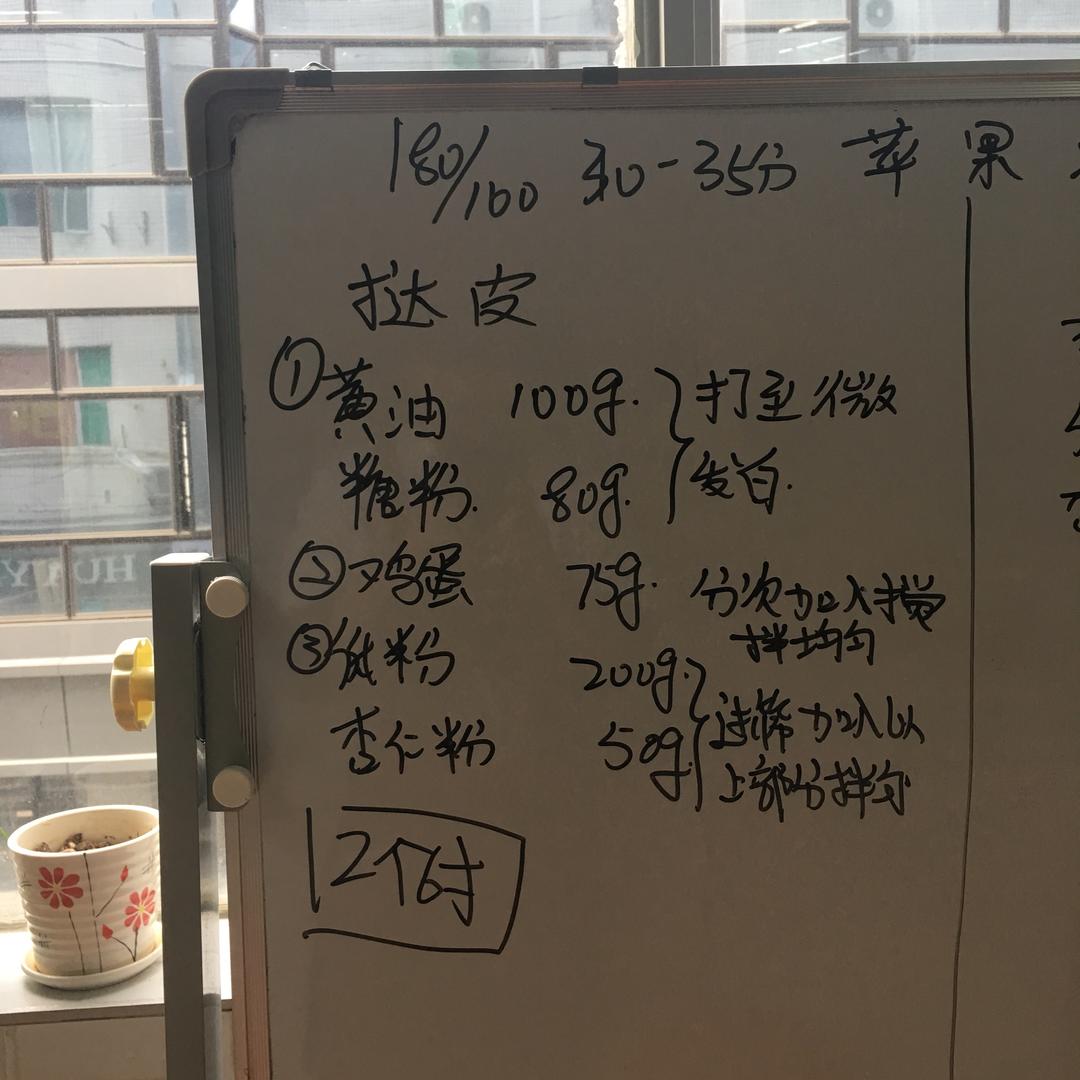 180/160 30-35分 苹果
挞皮
①黄油 100g. 打至微
糖粉. 80g. 发白.
②鸡蛋 75g. 分次加入搅
拌均匀
③低粉 200g.
杏仁粉 50g. 过筛加入以
上部分拌匀
12个6寸